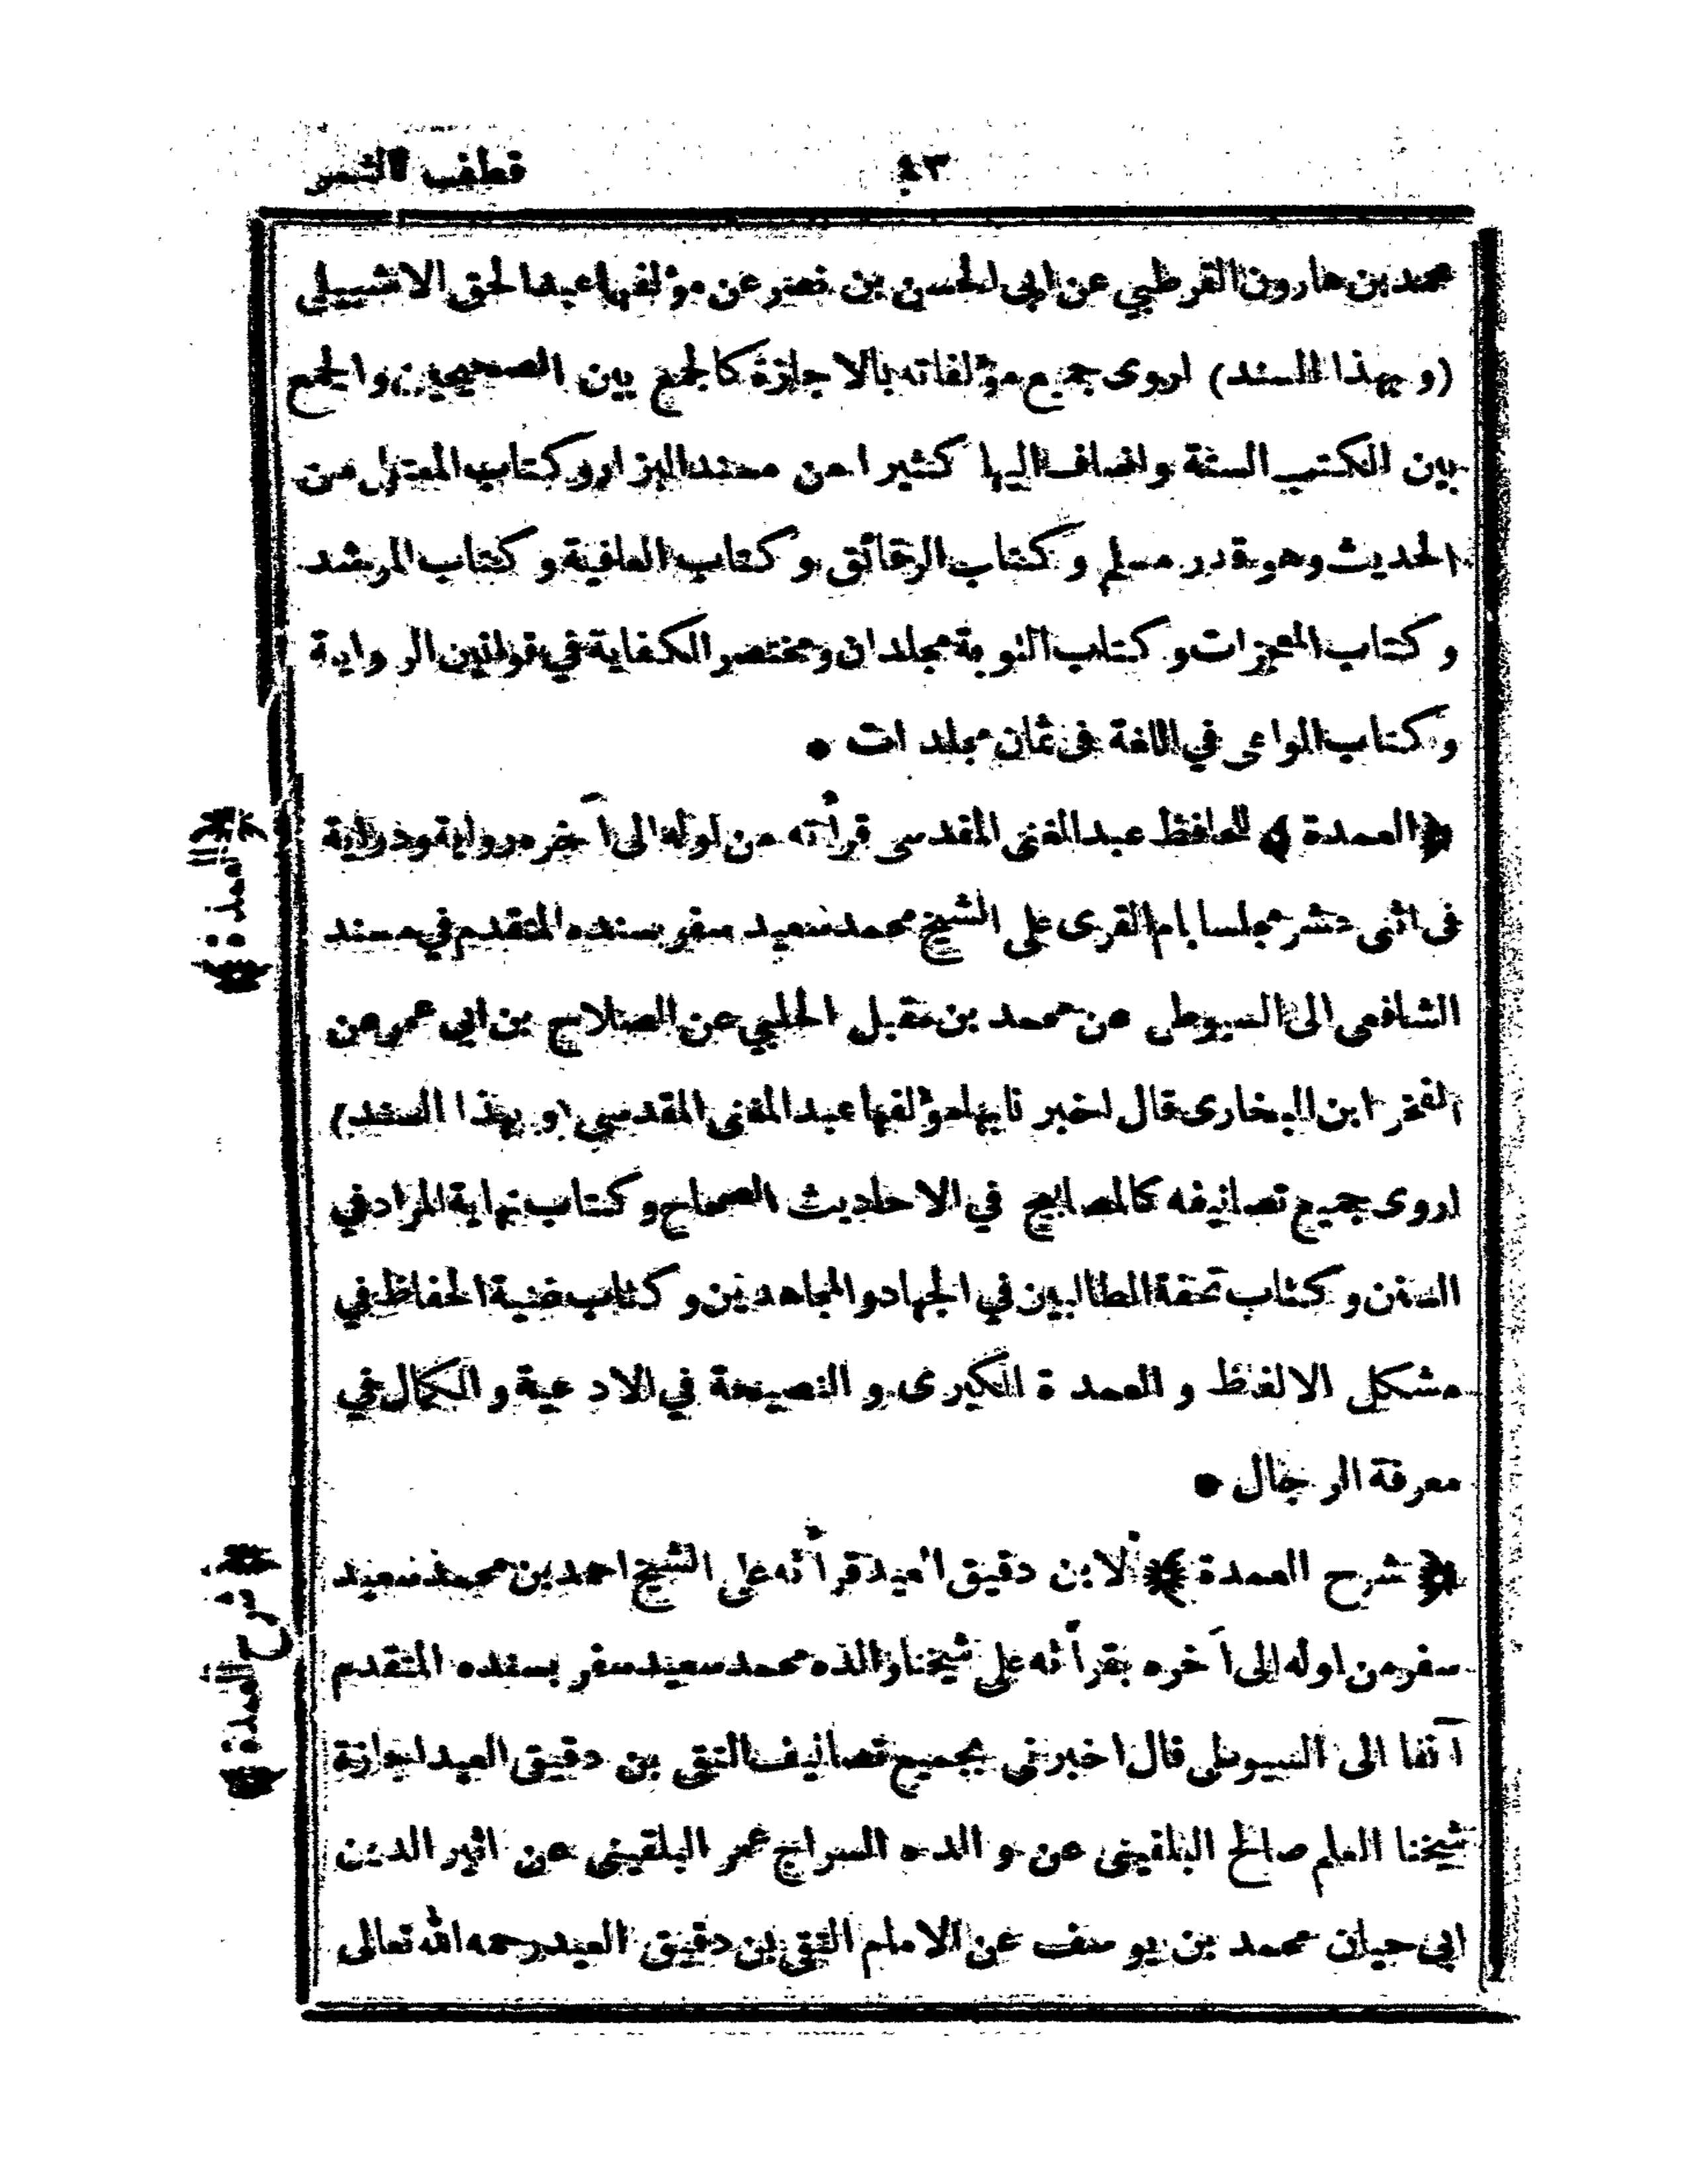 ٤٣ قطف الثمر
محمد بن هارون القرطبي عن ابى الحسن بن نصر عن مؤلفها عبد الحق الاشبيلي
(و بهذا السند) اروى جميع مؤلفاته بالاجازة كالجمع بين الصحيحين والجمع
بين الكتب الستة واضاف اليها كثيرا من مسند البزار وكتاب المعتل من
الحديث وهو قدر مسلم و كتاب الرقائق و كتاب العافية و كتاب المرشد
و كتاب المعجزات و كتاب التوبة مجلدان ومختصر الكفاية في قوانين الرواية
و كتاب الواعى في اللغة فى ثمان مجلدات •
﴿العمدة﴾ للحافظ عبد الغنى المقدسى قرأته من اوله الى آخره رواية ودراية
فى اثنى عشر مجلسا بام القرى على الشيخ محمد سعيد سفر بسنده المتقدم في مسند
الشافعى الى السيوطى عن محمد بن مقبل الحلبي عن الصلاح بن ابي عمر عن
الفخر ابن البخارى قال اخبر نا بها مؤلفها عبد الغنى المقدسي (و بهذا السند)
اروى جميع تصانيفه كالمصابيح في الاحاديث الصحاح و كتاب نهاية المراد في
السنن و كتاب تحفة الطالبين في الجهاد والمجاهدين و كتاب غنية الحفاظ في
مشكل الالفاظ و العمدة الكبرى و النصيحة في الادعية و الكمال في
معرفة الرجال •
﴿شرح العمدة﴾ لابن دقيق العيد قرأته على الشيخ احمد بن محمد سعيد
سفر من اوله الى آخره بقرأته على شيخنا والده محمد سعيد سفر بسنده المتقدم
آنفا الى السيوطى قال اخبرني بجميع تصانيف التقى بن دقيق العيد اجازة
شيخنا العلم صالح البلقينى عن والده السراج عمر البلقينى عن اثير الدين
ابى حيان محمد بن يوسف عن الامام التقى بن دقيق العيد رحمه الله تعالى
﴿العمدة﴾
﴿شرح العمدة﴾